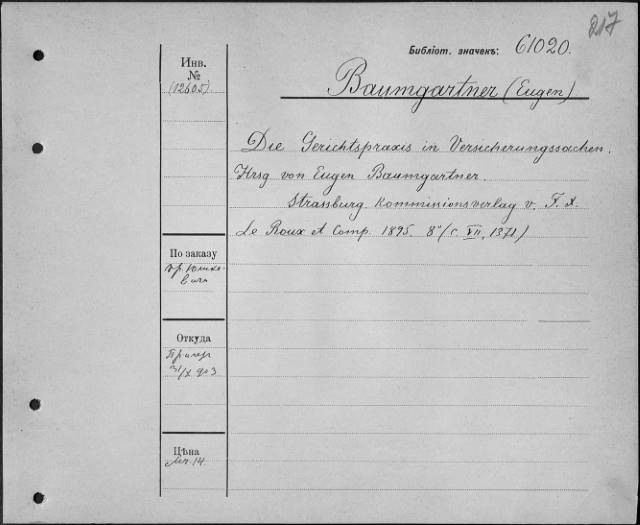 217
Библіот. значекъ: 61020.
Baumgartner (Eugen)
Инв.
№
(12605)
Die Gerichtspraxis in Versicherungssachen.
Hrsg von Eugen Baumgartner
Strassburg. Komminionsverlag v. F. X.
Le Roux et Comp. 1895. 8° (с. XII, 1371)
По заказу
Откуда
31/X 903
Цѣна
Мк. 14.